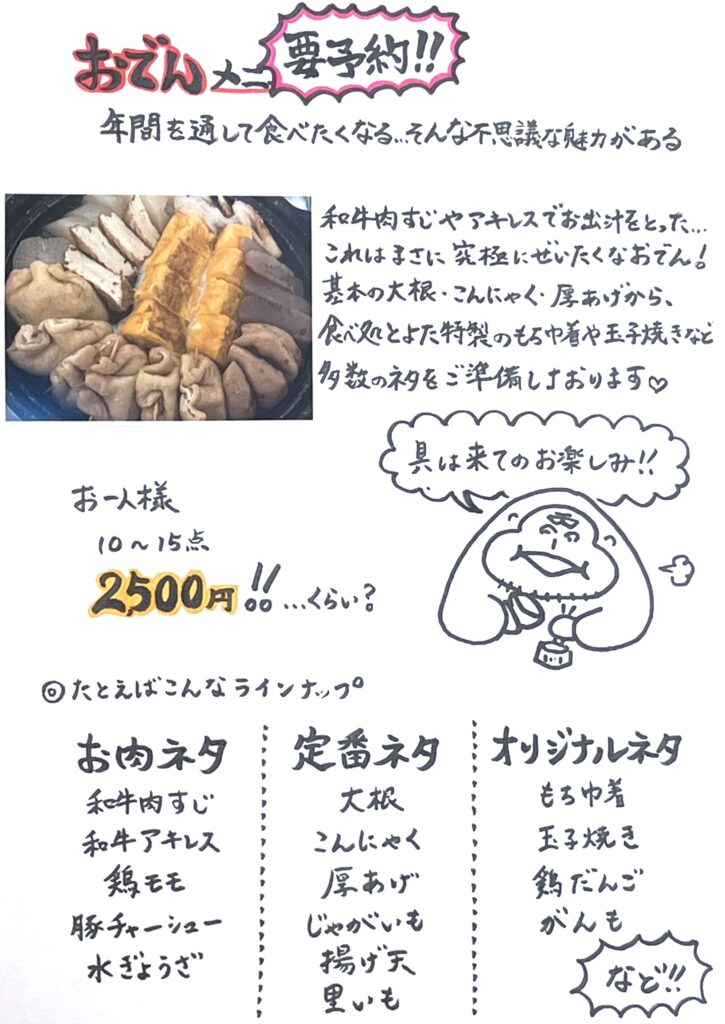 おでんメニ
要予約!!
年間を通して食べたくなる…そんな不思議な魅力がある
和牛肉すじやアキレスでお出汁をとった…
これはまさに究極にぜいたくなおでん!
基本の大根・こんにゃく・厚あげから、
食べ処とよた特製のもち巾着や玉子焼きなど
多数のネタをご準備しております♡
具は来てのお楽しみ!!
お一人様
10～15点
2,500円!!…くらい?
◎たとえばこんなラインナップ
お肉ネタ
和牛肉すじ
和牛アキレス
鶏モモ
豚チャーシュー
水ぎょうざ
定番ネタ
大根
こんにゃく
厚あげ
じゃがいも
揚げ天
里いも
オリジナルネタ
もち巾着
玉子焼き
鶏だんご
がんも
など!!